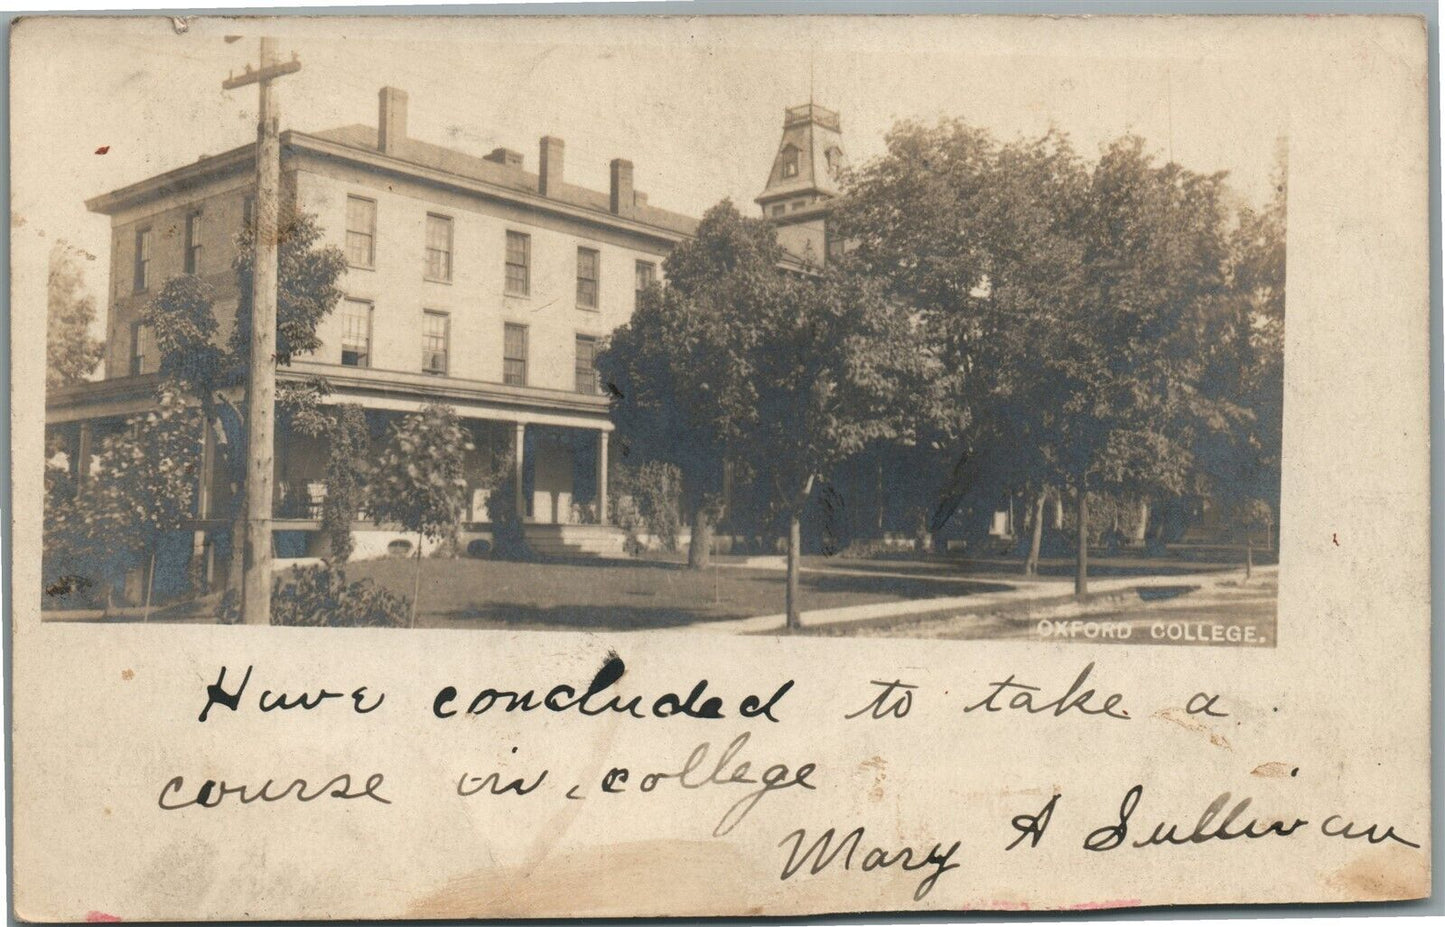 OXFORD COLLEGE.
Have concluded to take a
course in college
Mary A Sullivan